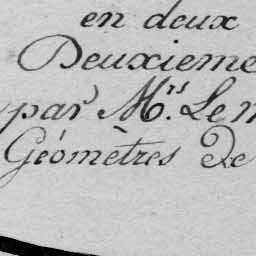 en deux
Deuxieme
par M.rs Lem
Géomètres De